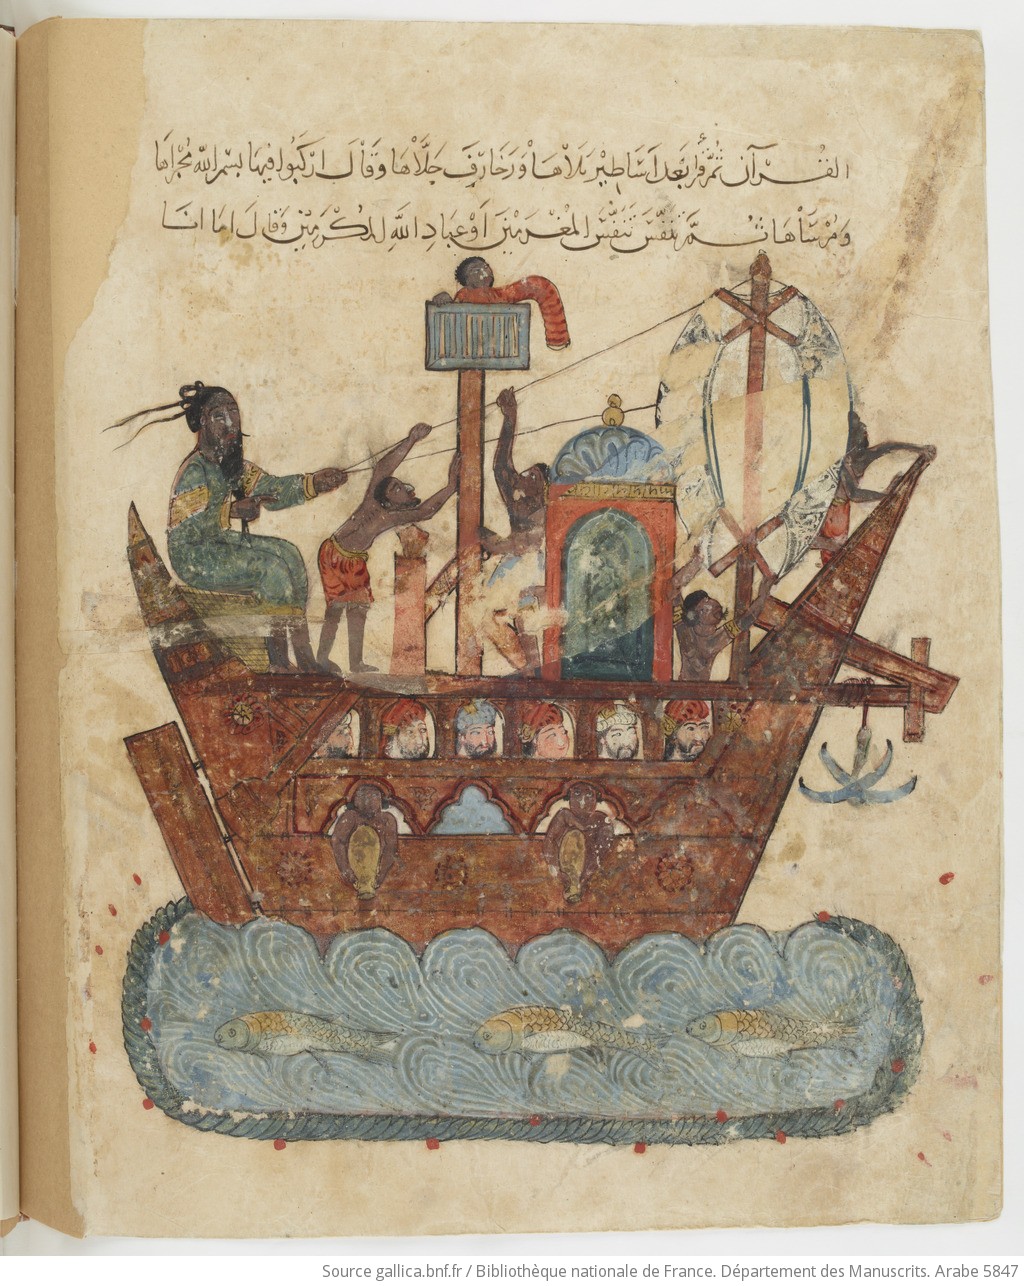 القُرْآن ثُمَّ قرأ بَعد اَسَاطيْر تَلاْهَا وَزَخَارِفَ جَلَّاْهَا وَقَاْلَ ارْكَبُوا فيهَا بسْم اللّه مُجْرَاهَا
وَمُرْسَاْهَا ثُمَّ تَنَفّسَ تَنَفُّسَ المُغْرَمِيْنَ اَوْ عِبَادِ اللَّهِ المُكْرَمِيْن وَقَاْلَ اما انَا
Source gallica.bnf.fr / Bibliothèque nationale de France. Département des Manuscrits. Arabe 5847